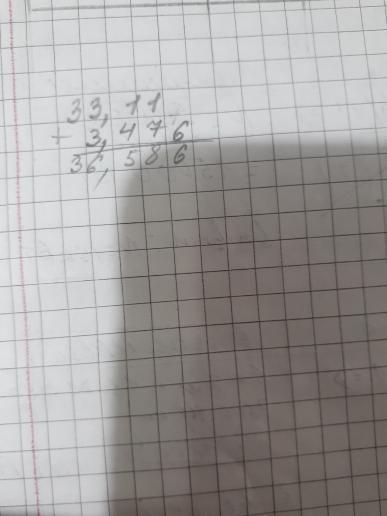 33,11
+ 3,476
36,586